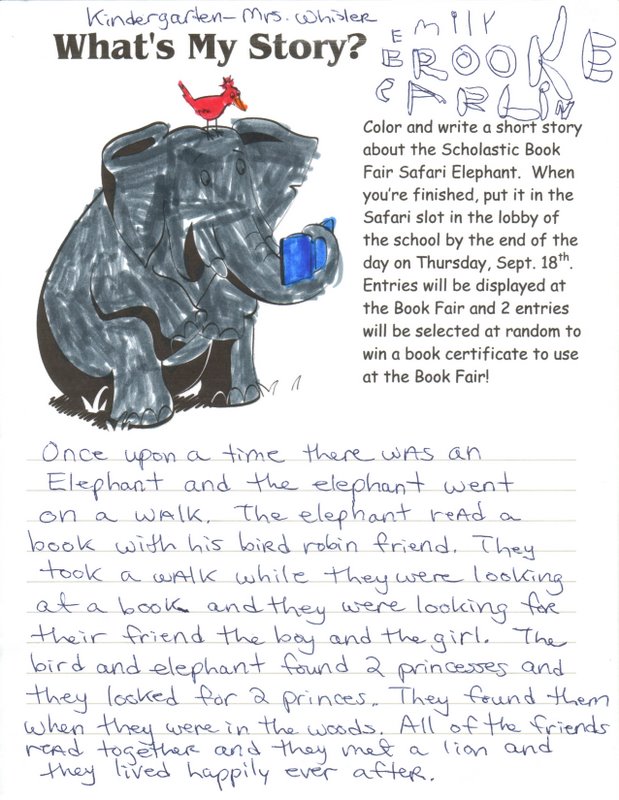 Kindergarten - Mrs. Whisler
What's My Story?
EMILY
BROOKE
CARLIN
Color and write a short story
about the Scholastic Book
Fair Safari Elephant. When
you're finished, put it in the
Safari slot in the lobby of
the school by the end of the
day on Thursday, Sept. 18th.
Entries will be displayed at
the Book Fair and 2 entries
will be selected at random to
win a book certificate to use
at the Book Fair!
Once upon a time there was an
Elephant and the elephant went
on a walk. The elephant read a
book with his bird robin friend. They
took a walk while they were looking
at a book and they were looking for
their friend the boy and the girl. The
bird and elephant found 2 princesses and
they looked for 2 princes. They found them
when they were in the woods. All of the friends
read together and they met a lion and
they lived happily ever after.